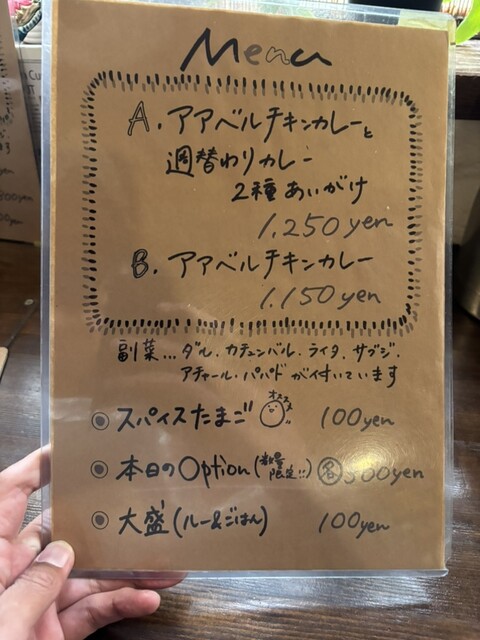 Menu
A. アアベルチキンカレーと
週替わりカレー
2種あいがけ
1.250yen
B. アアベルチキンカレー
1.150yen
副菜… ダル、カチュンバル、ライタ、サブジ、
アチャール・パパド が付いています
◎ スパイスたまご オススメ 100yen
◎ 本日のOption (数量限定!!) 各300yen
◎ 大盛 (ルー&ごはん) 100yen